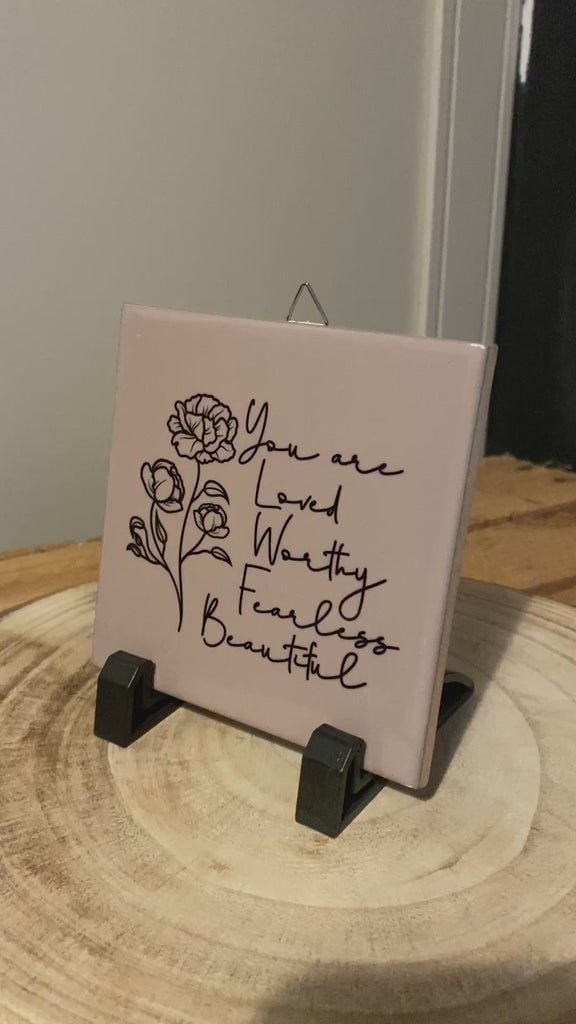 You are
Loved
Worthy
Fearless
Beautiful